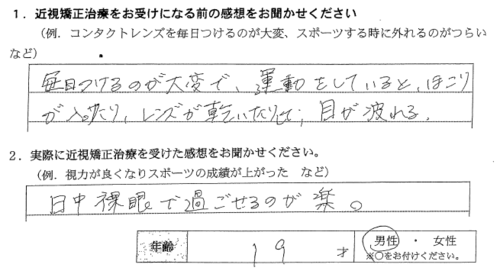 １．近視矯正治療をお受けになる前の感想をお聞かせください
（例．コンタクトレンズを毎日つけるのが大変、スポーツする時に外れるのがつらい
など）
毎日つけるのが大変で、運動をしていると、ほこり
が入ったり、レンズが乾いたりして、目が疲れる。
２．実際に近視矯正治療を受けた感想をお聞かせください。
（例．視力が良くなりスポーツの成績が上がった　など）
日中裸眼で過ごせるのが楽。
年齢　19　才　男性　・　女性
※○をお付けください。